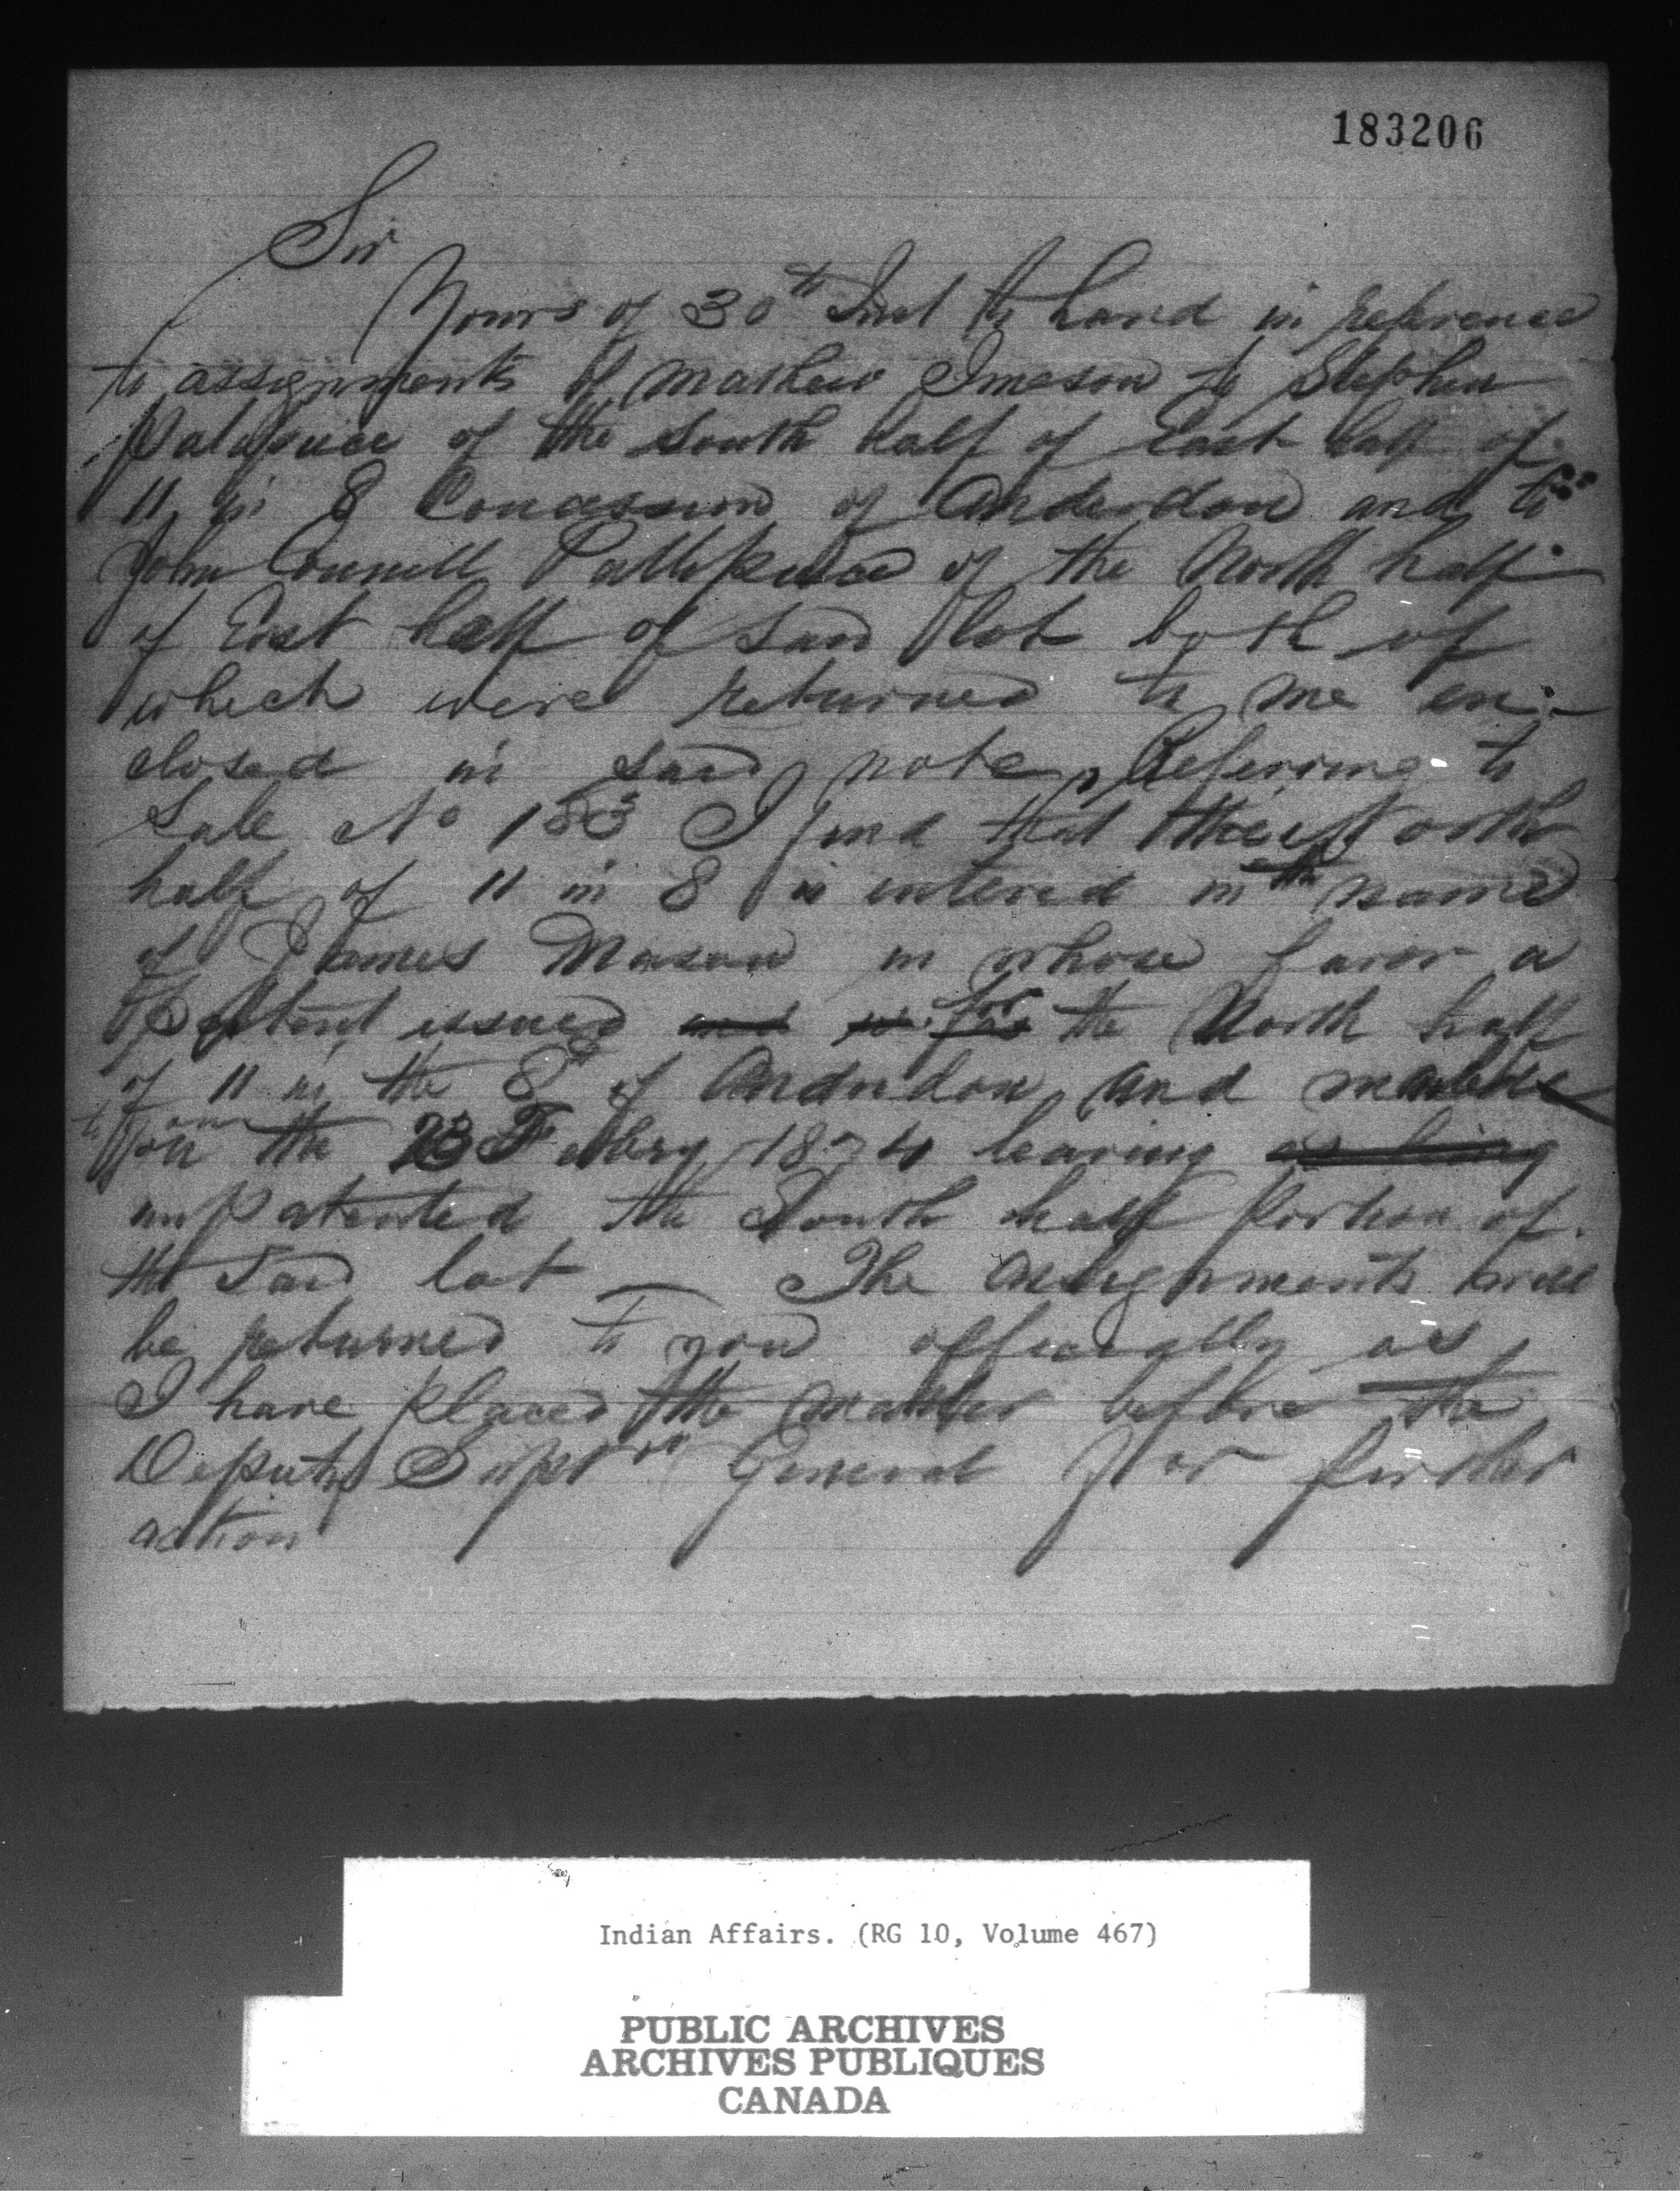 183206
Sir
Yours of 30th Inst to hand in reference
to assignments of Mathew Imeson to Stephen
of the South half of East half of
11 in 8 Concession of Anderdon and to
John Connell of the North half
of East half of said lot both of
which were returned to me en-
closed in said note, Refering to
Sale No 183 I find that the North
half of 11 in 8 is entered in the name
of James Mason in whose favor a
Patent issued and for the North half
of 11 in the 8th of Anderdon and
on the 23 1874 leaving as being
unpatented the South half portion of
the said lot — The assignments will
be returned to you officially as
I have placed the matter before the
Deputy Supt General for further
action
Indian Affairs. (RG 10, Volume 467)
PUBLIC ARCHIVES
ARCHIVES PUBLIQUES
CANADA